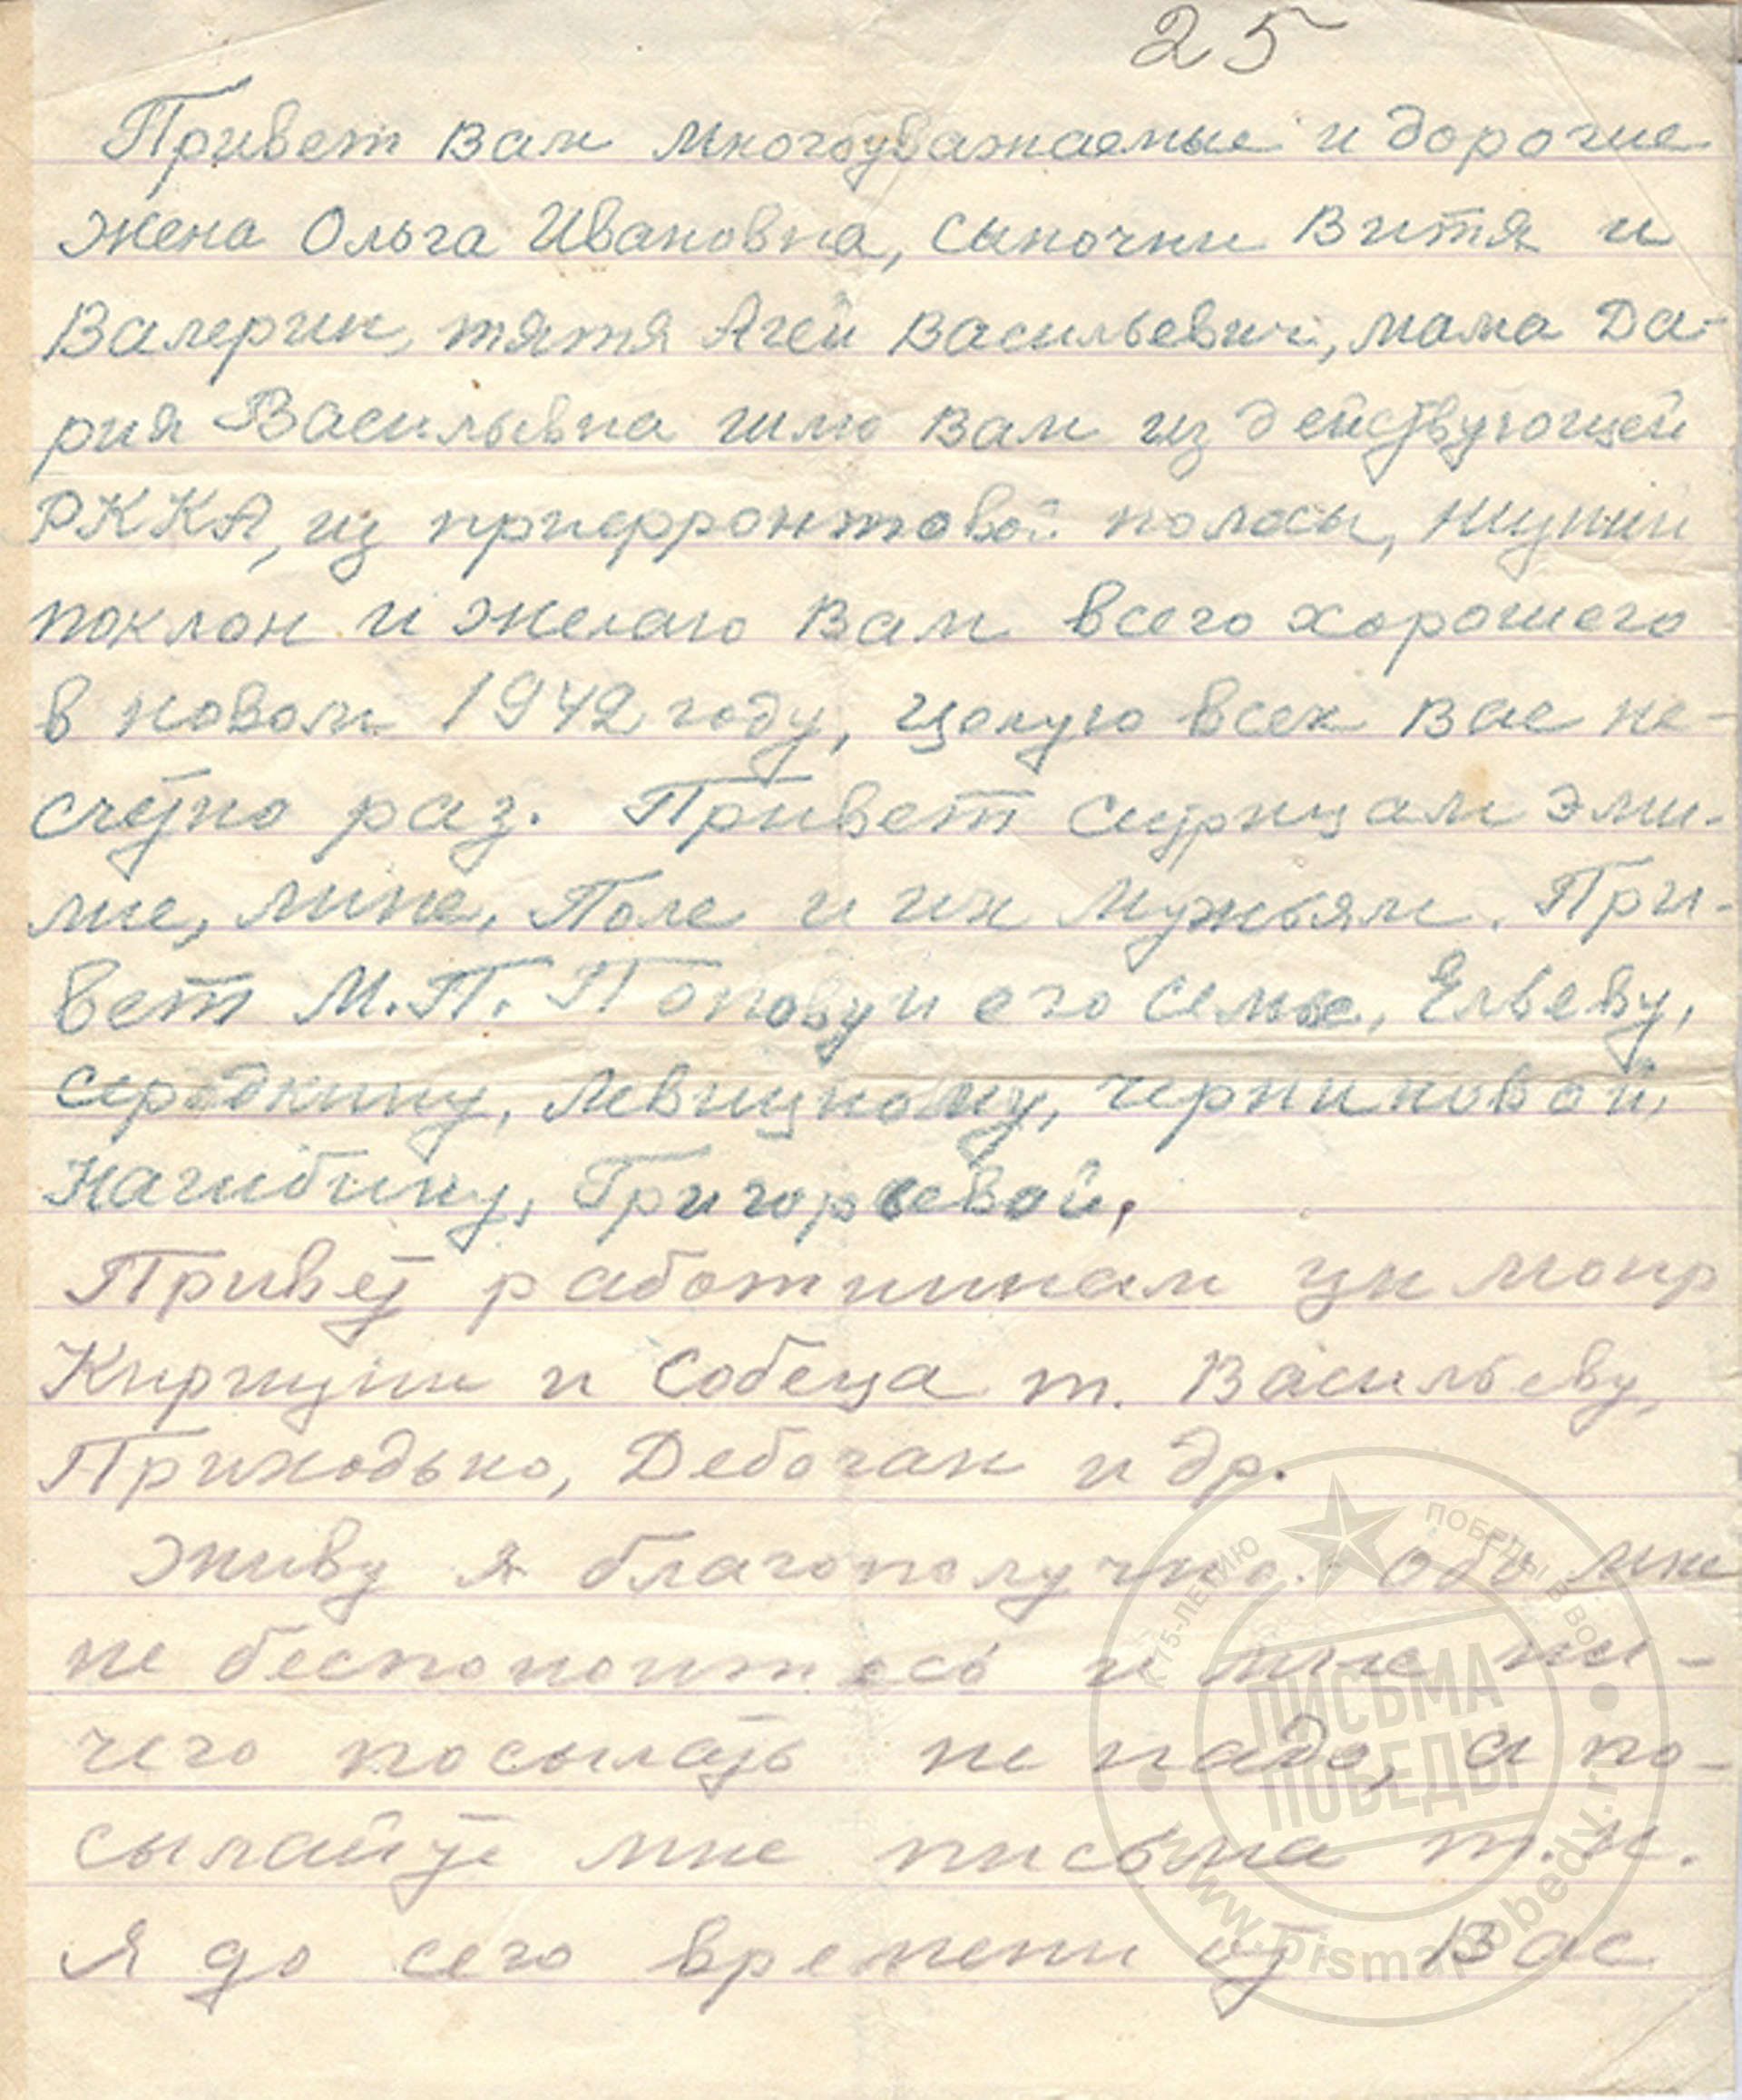 25
Привет Вам многоуважаемые и дорогие
жена Ольга Ивановна, сыночки Витя и
Валерик, тятя Агей Васильевич, мама Да-
рия Васильевна шлю Вам из действующей
РККА, из прифронтовой полосы, низкий
поклон и желаю Вам всего хорошего
в новом 1942 году, целую всех Вас не-
счетно раз. Привет сестрицам Эми-
лие, Лине, Поле и их мужьям. При-
вет М.П. Попову и его семье, Ельеву,
Середкину, Левицкому, Черниковой,
Нагибину, Григорьевой,
Привет работникам ЦК МОПР
Киргизии и Собеца т. Васильеву,
Приходько, Дебоган и др.
Живу я благополучно. Обо мне
не беспокоитесь и мне ни-
чего посылать не надо, а по-
сылайте мне письма т.к.
я до сего времени от Вас
К 75-ЛЕТИЮ ПОБЕДЫ В ВОВ
ПИСЬМА
ПОБЕДЫ
www.pismapobedy.ru